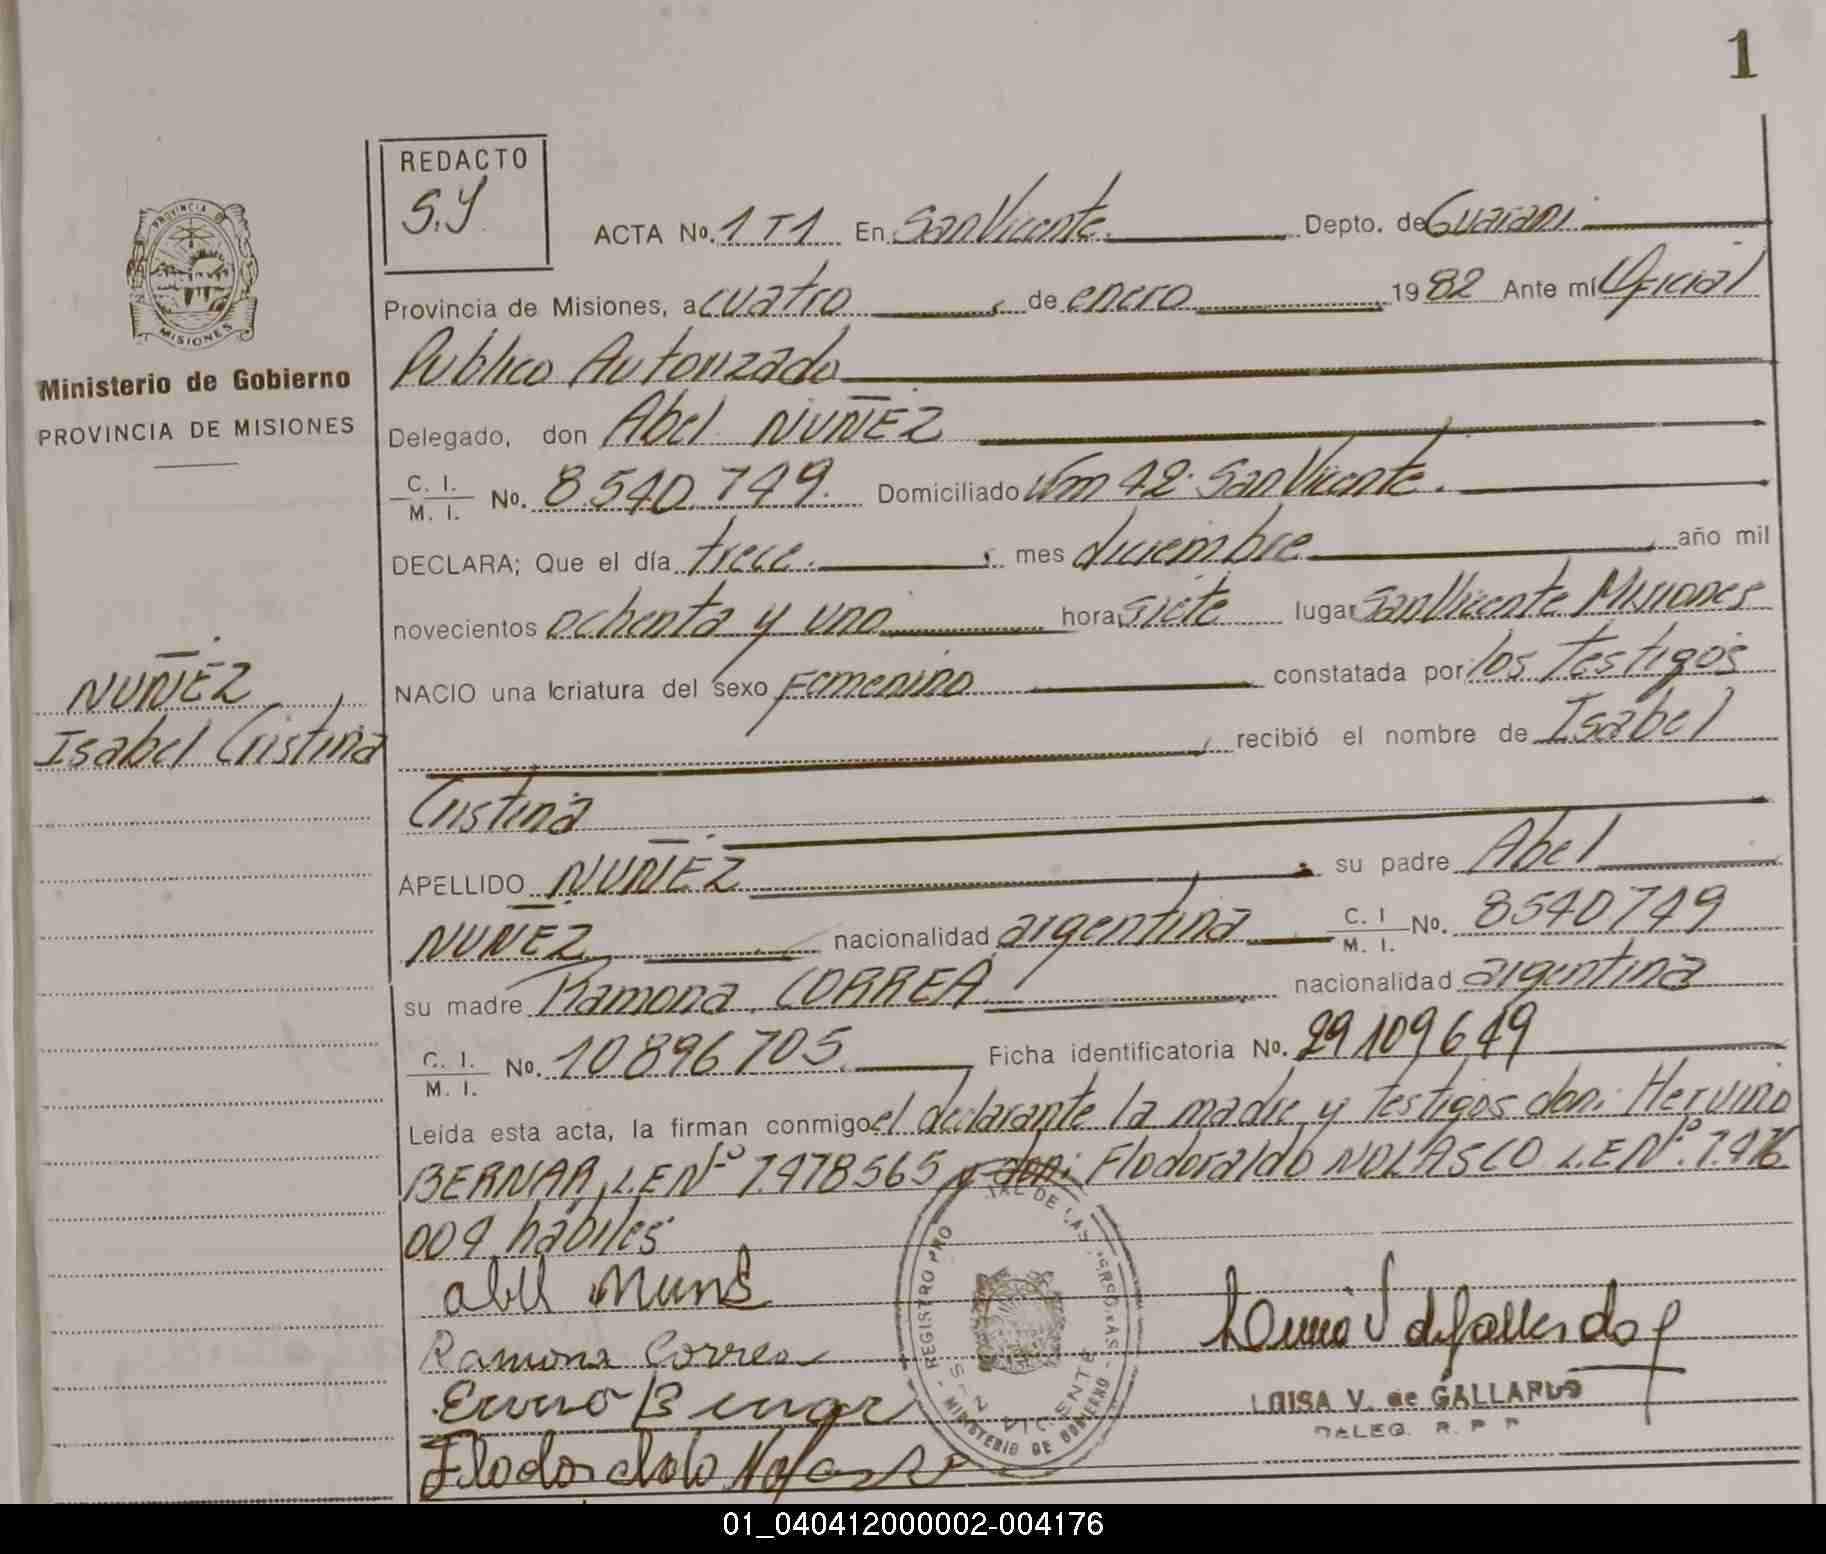 1
REDACTO
S.Y
ACTA No. 1 T 1 En San Vicente. Depto. de Guarani
Provincia de Misiones, a cuatro, de enero 1982 Ante mí Oficial
Publico Autorizado
Delegado, don Abel NUÑEZ
C. I. / M. I. No. 8.540.749. Domiciliado Km 42- San Vicente.
DECLARA; Que el día trece. ; mes diciembre, año mil
novecientos ochenta y uno hora siete lugar San Vicente Misiones
NACIO una criatura del sexo Femenino constatada por: los testigos
, recibió el nombre de Isabel
Cristina
APELLIDO NUÑEZ. su padre Abel
NUÑEZ nacionalidad argentina C. I / M. I. No. 8540749
su madre Ramona CORREA. nacionalidad argentina
C. I. / M. I. No. 10896705 Ficha identificatoria No. 29109649
Leída esta acta, la firman conmigo el declarante la madre y testigos don: Hervino
BERNAR, L.E Nº 7.478565 y don: Flodoraldo NOLASCO L.E Nº. 7.476
009 hábiles
Ramona Correa
LUISA V. de GALLARDO
DELEG. R. P. P
PROVINCIA DE
MISIONES
Ministerio de Gobierno
PROVINCIA DE MISIONES
NUÑEZ
Isabel Cristina
REGISTRO PRO DE LAS PERSONAS -
- MINISTERIO DE GOBIERNO
SAN VICENTE
01_040412000002-004176